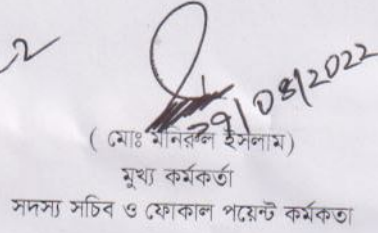 ২৯/০৪/২০২২
( মোঃ মনিরুল ইসলাম)
মুখ্য কর্মকর্তা
সদস্য সচিব ও ফোকাল পয়েন্ট কর্মকতা